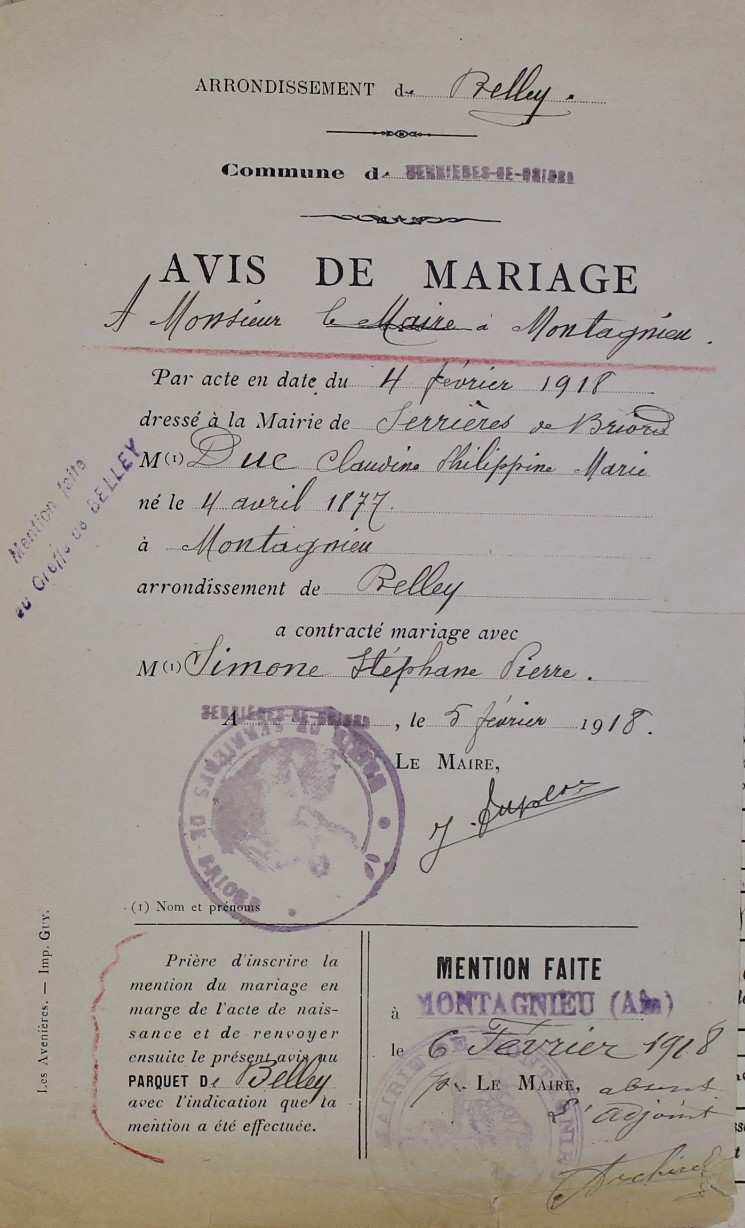 ARRONDISSEMENT de Belley.
Commune de SERRIÈRES-DE-BRIORD
AVIS DE MARIAGE
A Monsieur le Maire à Montagnieu.
Par acte en date du 4 février 1918
dressé à la Mairie de Serrières de Briord
M(1) Duc Claudine Philippine Marie
né le 4 avril 1877.
à Montagnieu
arrondissement de Belley
a contracté mariage avec
M(1) Simone Stéphane Pierre.
A SERRIÈRES-DE-BRIORD, le 5 février 1918.
LE MAIRE,
MAIRIE DE SERRIÈRES DE BRIORD
Mention faite
au Greffe de BELLEY
(1) Nom et prénoms
Les Avenières. — Imp. GUY.
Prière d'inscrire la
mention du mariage en
marge de l'acte de nais-
sance et de renvoyer
ensuite le présent avis au
PARQUET DE Belley
avec l'indication que la
mention a été effectuée.
MENTION FAITE
à MONTAGNIEU (Ain)
le 6 Février 1918
pr LE MAIRE, absent
L'adjoint